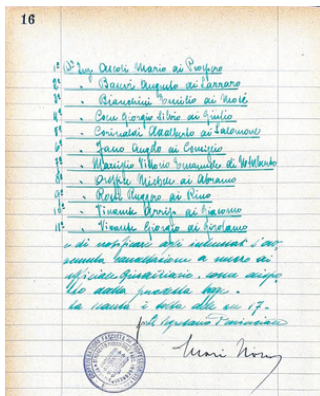 16
1º Ing Ascoli Mario di Prospero
2º " Bassi Augusto di Lazzaro
3º " Bianchini Emilio di Mosè
4º " Coen Giorgio Silvio di Giulio
5º " Corinaldi Adalberto di Salomone
6º " Fano Angelo di Consiglio
7º " Morpurgo Vittorio Emanuele di Umberto
8º " Oreffice Michele di Abramo
9º " Ruggero di Pino
10º " Vivante Arrigo di Giacomo
11º " Vivante Giorgio di Girolamo
e di notificare agli interessati l'av
venuta cancellazione a mezzo di
ufficiale Giudiziario come dispo
sto dalla predetta legge.
La seduta è tolta alle ore 17.
Il Segretario